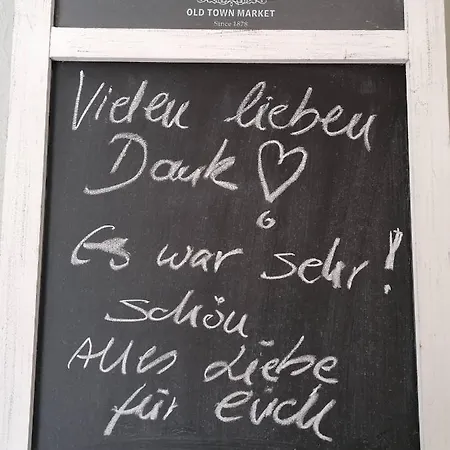 OLD TOWN MARKET
Since 1878
Vielen lieben
Dank
Es war sehr!
schön.
Alles Liebe
für euch